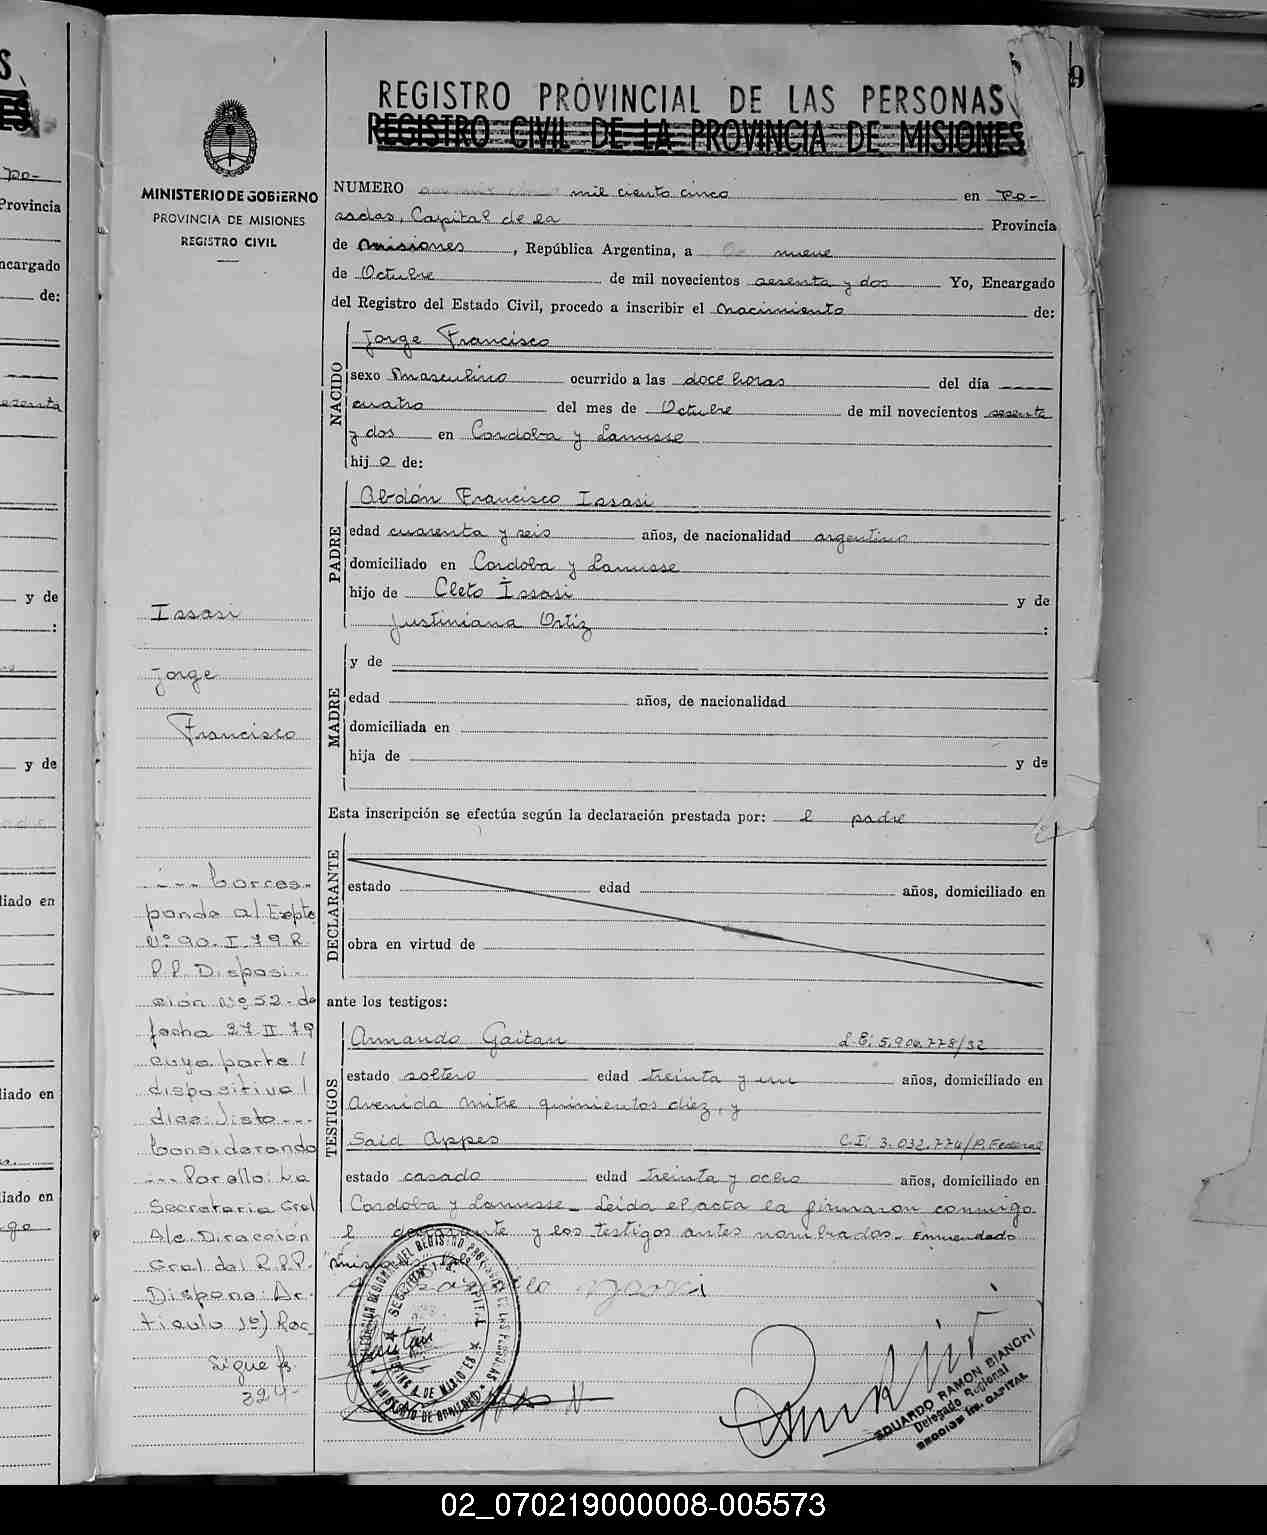 REGISTRO PROVINCIAL DE LAS PERSONAS
REGISTRO CIVIL DE LA PROVINCIA DE MISIONES
9
MINISTERIO DE GOBIERNO
PROVINCIA DE MISIONES
REGISTRO CIVIL
NUMERO mil ciento cinco en Po-
sadas, Capital de la Provincia
de Misiones, República Argentina, a nueve
de Octubre de mil novecientos sesenta y dos Yo, Encargado
del Registro del Estado Civil, procedo a inscribir el Nacimiento de:
NACIDO
Jorge Francisco
sexo Masculino ocurrido a las doce horas del día
cuatro del mes de Octubre de mil novecientos sesenta
y dos en Cordoba y Lanusse
hij o de:
PADRE
Abdón Francisco Issasi
edad cuarenta y seis años, de nacionalidad argentino
domiciliado en Cordoba y Lanusse
hijo de Cleto Issasi y de
Justiniana Ortiz :
MADRE
y de
edad años, de nacionalidad
domiciliada en
hija de y de
Esta inscripción se efectúa según la declaración prestada por: el padre
DECLARANTE
estado edad años, domiciliado en
obra en virtud de
ante los testigos:
TESTIGOS
Armando Gaitan L.E. 5.906.778/32
estado soltero edad treinta y un años, domiciliado en
Avenida Mitre quinientos diez, y
Said Appes C.I. 3.032.774/P. Federal
estado casado edad treinta y ocho años, domiciliado en
Cordoba y Lanusse_ Leida el acta la firmaron conmigo
el y los testigos antes nombrados. Enmendado
Issasi
Jorge
Francisco
--- Corres-
ponde al Expte
Nº 90. I. 79 R.
P.P. Disposi-
ción Nº 52 de
fecha 27 II 79
cuya parte /
dispositiva /
dice: Visto ---
Considerando
--- Por ello: La
Secretaria Gral
A/c Dirección
Gral del R.P.P.
Dispone: Ar-
tículo 1º) Rec
Sigue fs.
324-
EDUARDO RAMON BIANCHI
Delegado Regional
SECCION 1ra. CAPITAL
02_070219000008-005573